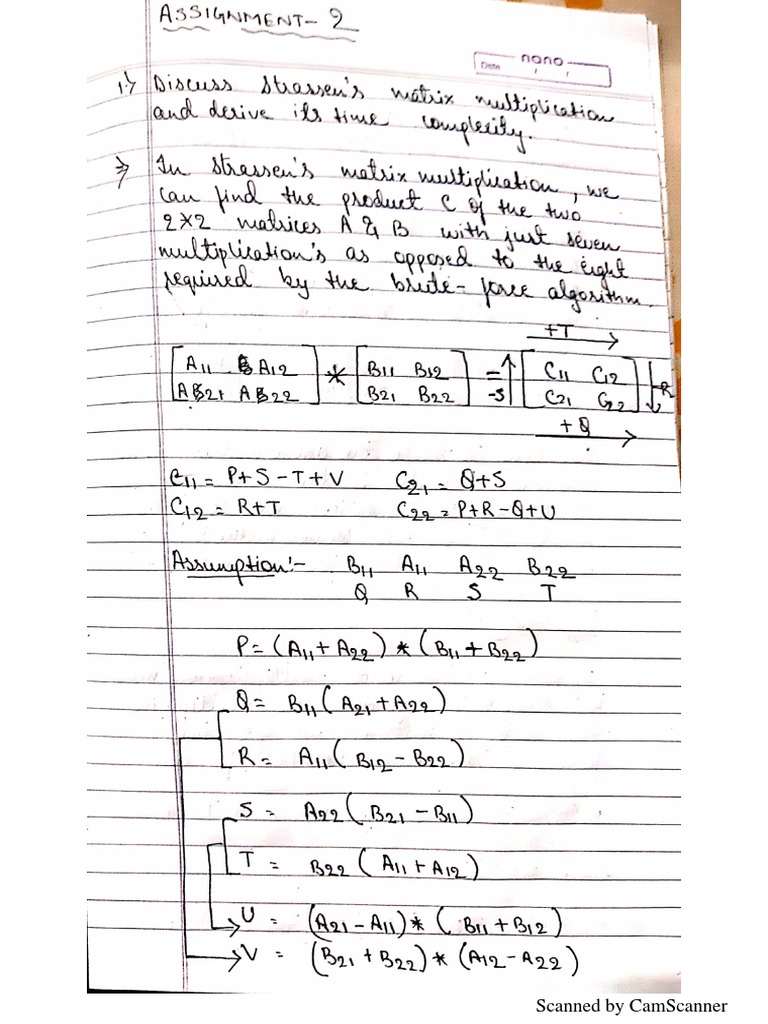 ASSIGNMENT- 2
Date nono
1.) Discuss Strassen's matrix multiplication
and derive its time complexity.
⇒ In Strassen's matrix multiplication, we
can find the product C of the two
2*2 matrices A & B with just seven
multiplication's as opposed to the eight
required by the brute-force algorithm.
+T
[A11 A12] * [B11 B12] = [C11 C12]
[A21 A22] [B21 B22] -S [C21 C22] -R
+Q
C11 = P+S-T+V C21 = Q+S
C12 = R+T C22 = P+R-Q+U
Assumption:- B11 A11 A22 B22
Q R S T
P = (A11 + A22) * (B11 + B22)
Q = B11 (A21 + A22)
R = A11 (B12 - B22)
S = A22 (B21 - B11)
T = B22 (A11 + A12)
U = (A21 - A11) * (B11 + B12)
V = (B21 + B22) * (A12 - A22)
Scanned by CamScanner